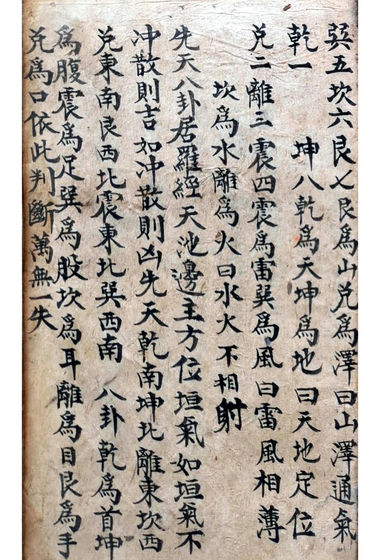 巽五坎六艮七艮為山兌為澤曰山澤通氣
乾一 坤八乾為天坤為地曰天地定位
兌二離三震四震為雷巽為風曰雷風相薄
坎為水離為火曰水火不相射
先天八卦居羅經天池邊主方位垣氣如垣氣不
冲散則吉如冲散則凶先天乾南坤北離東坎西
兌東南艮西北震東北巽西南 八卦乾為首坤
為腹震為足巽為股坎為耳離為目艮為手
兌為口依此判斷萬無一失